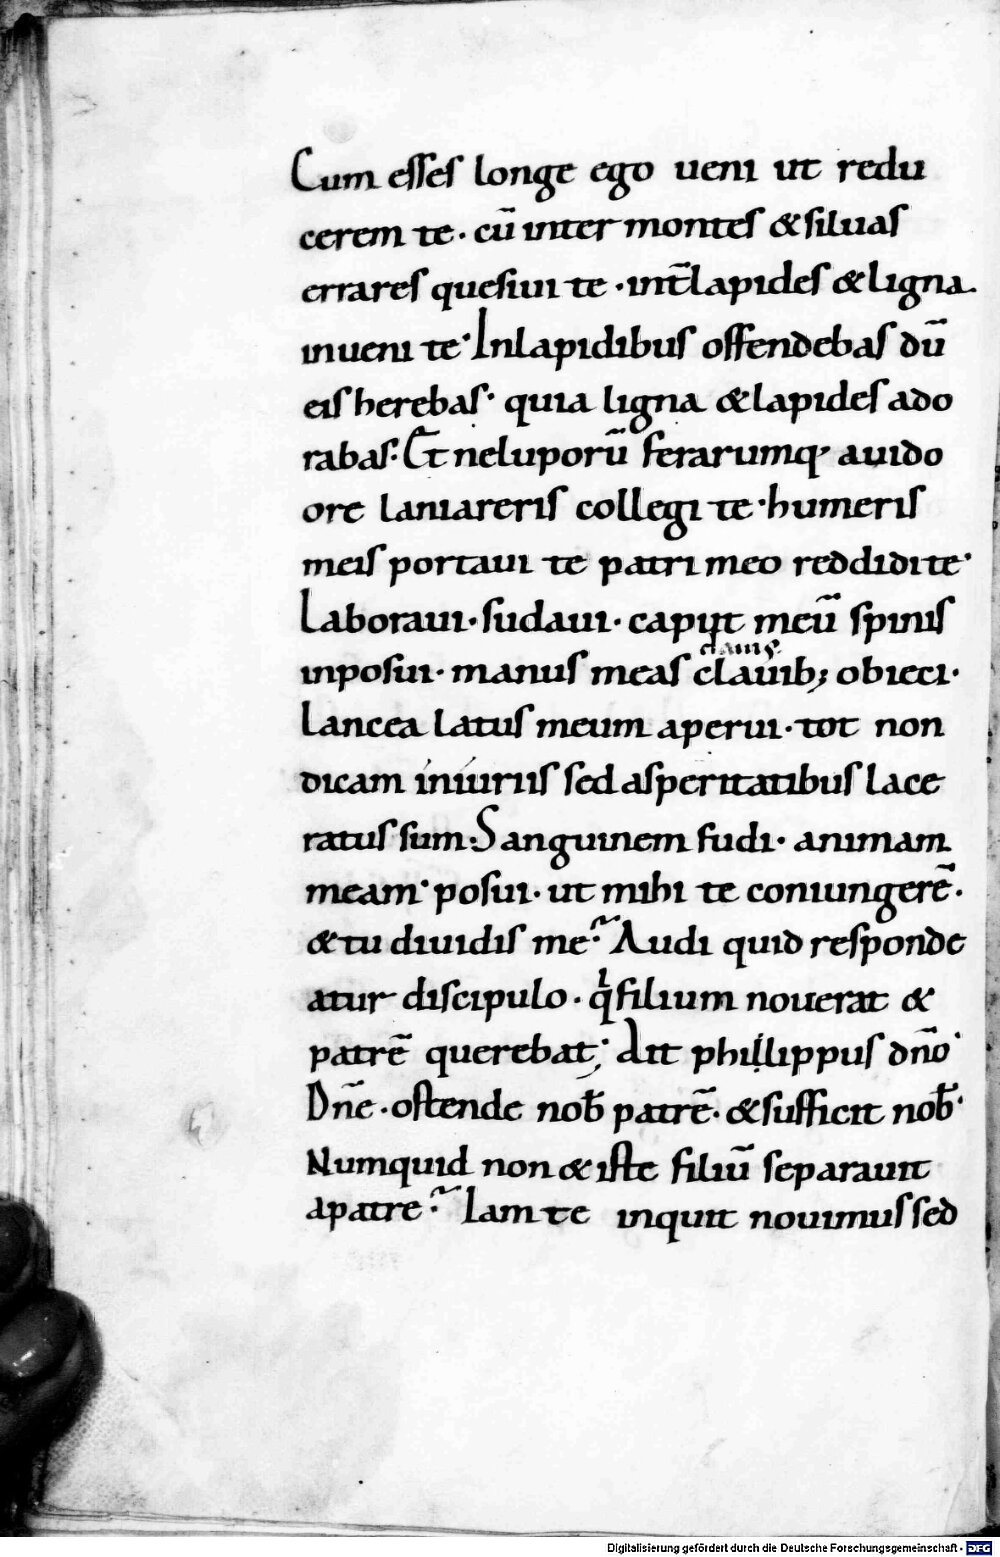 Cum esses longe ego ueni ut redu
cerem te. cū inter montes & siluas
errares quesiui te. int̄ lapides & ligna
inueni te. In lapidibus offendebas dū
eis herebas. quia ligna & lapides ado
rabas. Et ne luporū ferarumq; auido
ore laniareris collegi te. humeris
meis portaui te patri meo reddidi te.
Laboraui. sudaui. caput meū spinis
clauis
inposui. manus meas clauib; obieci.
Lancea latus meum aperui. tot non
dicam iniuriis sed asperitatibus lace
ratus sum. Sanguinem fudi. animam
meam posui. ut mihi te coniungerē.
& tu diuidis me? Audi quid responde
atur discipulo. qi filium nouerat &
patrē querebat; Ait phillippus dn̄o
Dn̄e. ostende nob̄ patrē. & sufficit nob̄.
Numquid non & iste filiū separauit
a patre? Iam te inquit nouimus sed
Digitalisierung gefördert durch die Deutsche Forschungsgemeinschaft - DFG